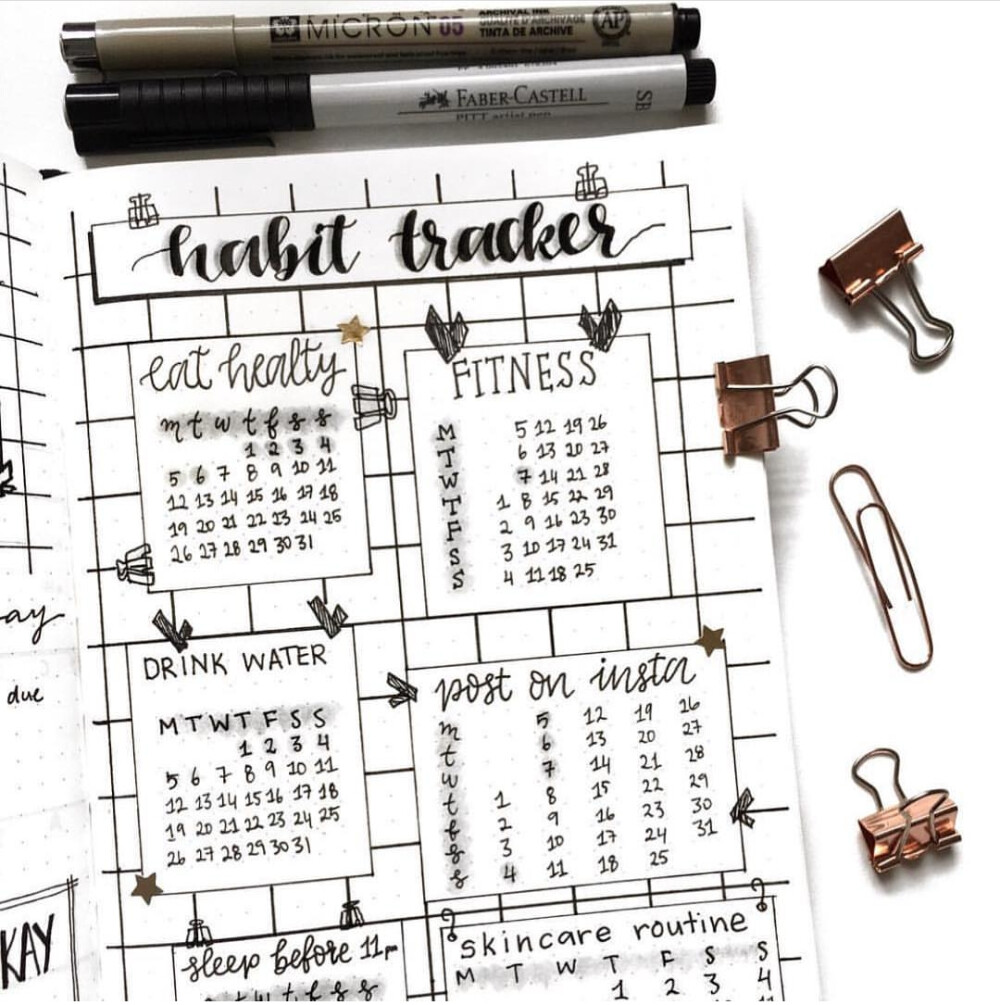 MICRON 05
ARCHIVAL INK
QUALITÉ D'ARCHIVAGE
TINTA DE ARCHIVE
AP
FABER-CASTELL
PITT artist pen
SB
habit tracker
eat healty
m t w t f s s
1 2 3 4
5 6 7 8 9 10 11
12 13 14 15 16 17 18
19 20 21 22 23 24 25
26 27 28 29 30 31
FITNESS
M 5 12 19 26
T 6 13 20 27
W 7 14 21 28
T 1 8 15 22 29
F 2 9 16 23 30
S 3 10 17 24 31
S 4 11 18 25
ay
due
KAY
DRINK WATER
M T W T F S S
1 2 3 4
5 6 7 8 9 10 11
12 13 14 15 16 17 18
19 20 21 22 23 24 25
26 27 28 29 30 31
post on insta
m 5 12 19 26
t 6 13 20 27
w 7 14 21 28
t 1 8 15 22 29
f 2 9 16 23 30
s 3 10 17 24 31
s 4 11 18 25
sleep before 11
m t w t f s s
skincare routine
M T W T F S S
1 2 3 4